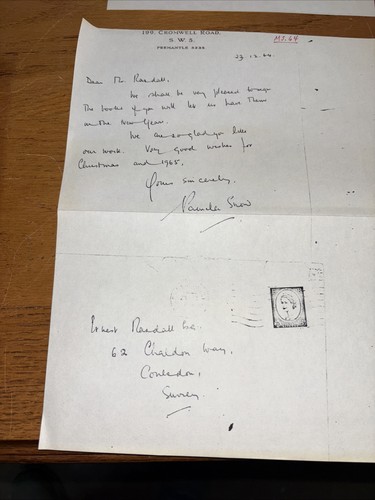 199, CROMWELL ROAD,
S.W.5.
FREMANTLE 8432
MS.64
23.12.64
Dear Mr. Randall,
We shall be very pleased to sign
the books if you will let us have them
in the New Year.
We are so glad you like
our work. Very good wishes for
Christmas and 1965.
Yours sincerely,
Pamela Snow
Ernest Randall Esq.
62 Chaldon Way,
Coulsdon,
Surrey.